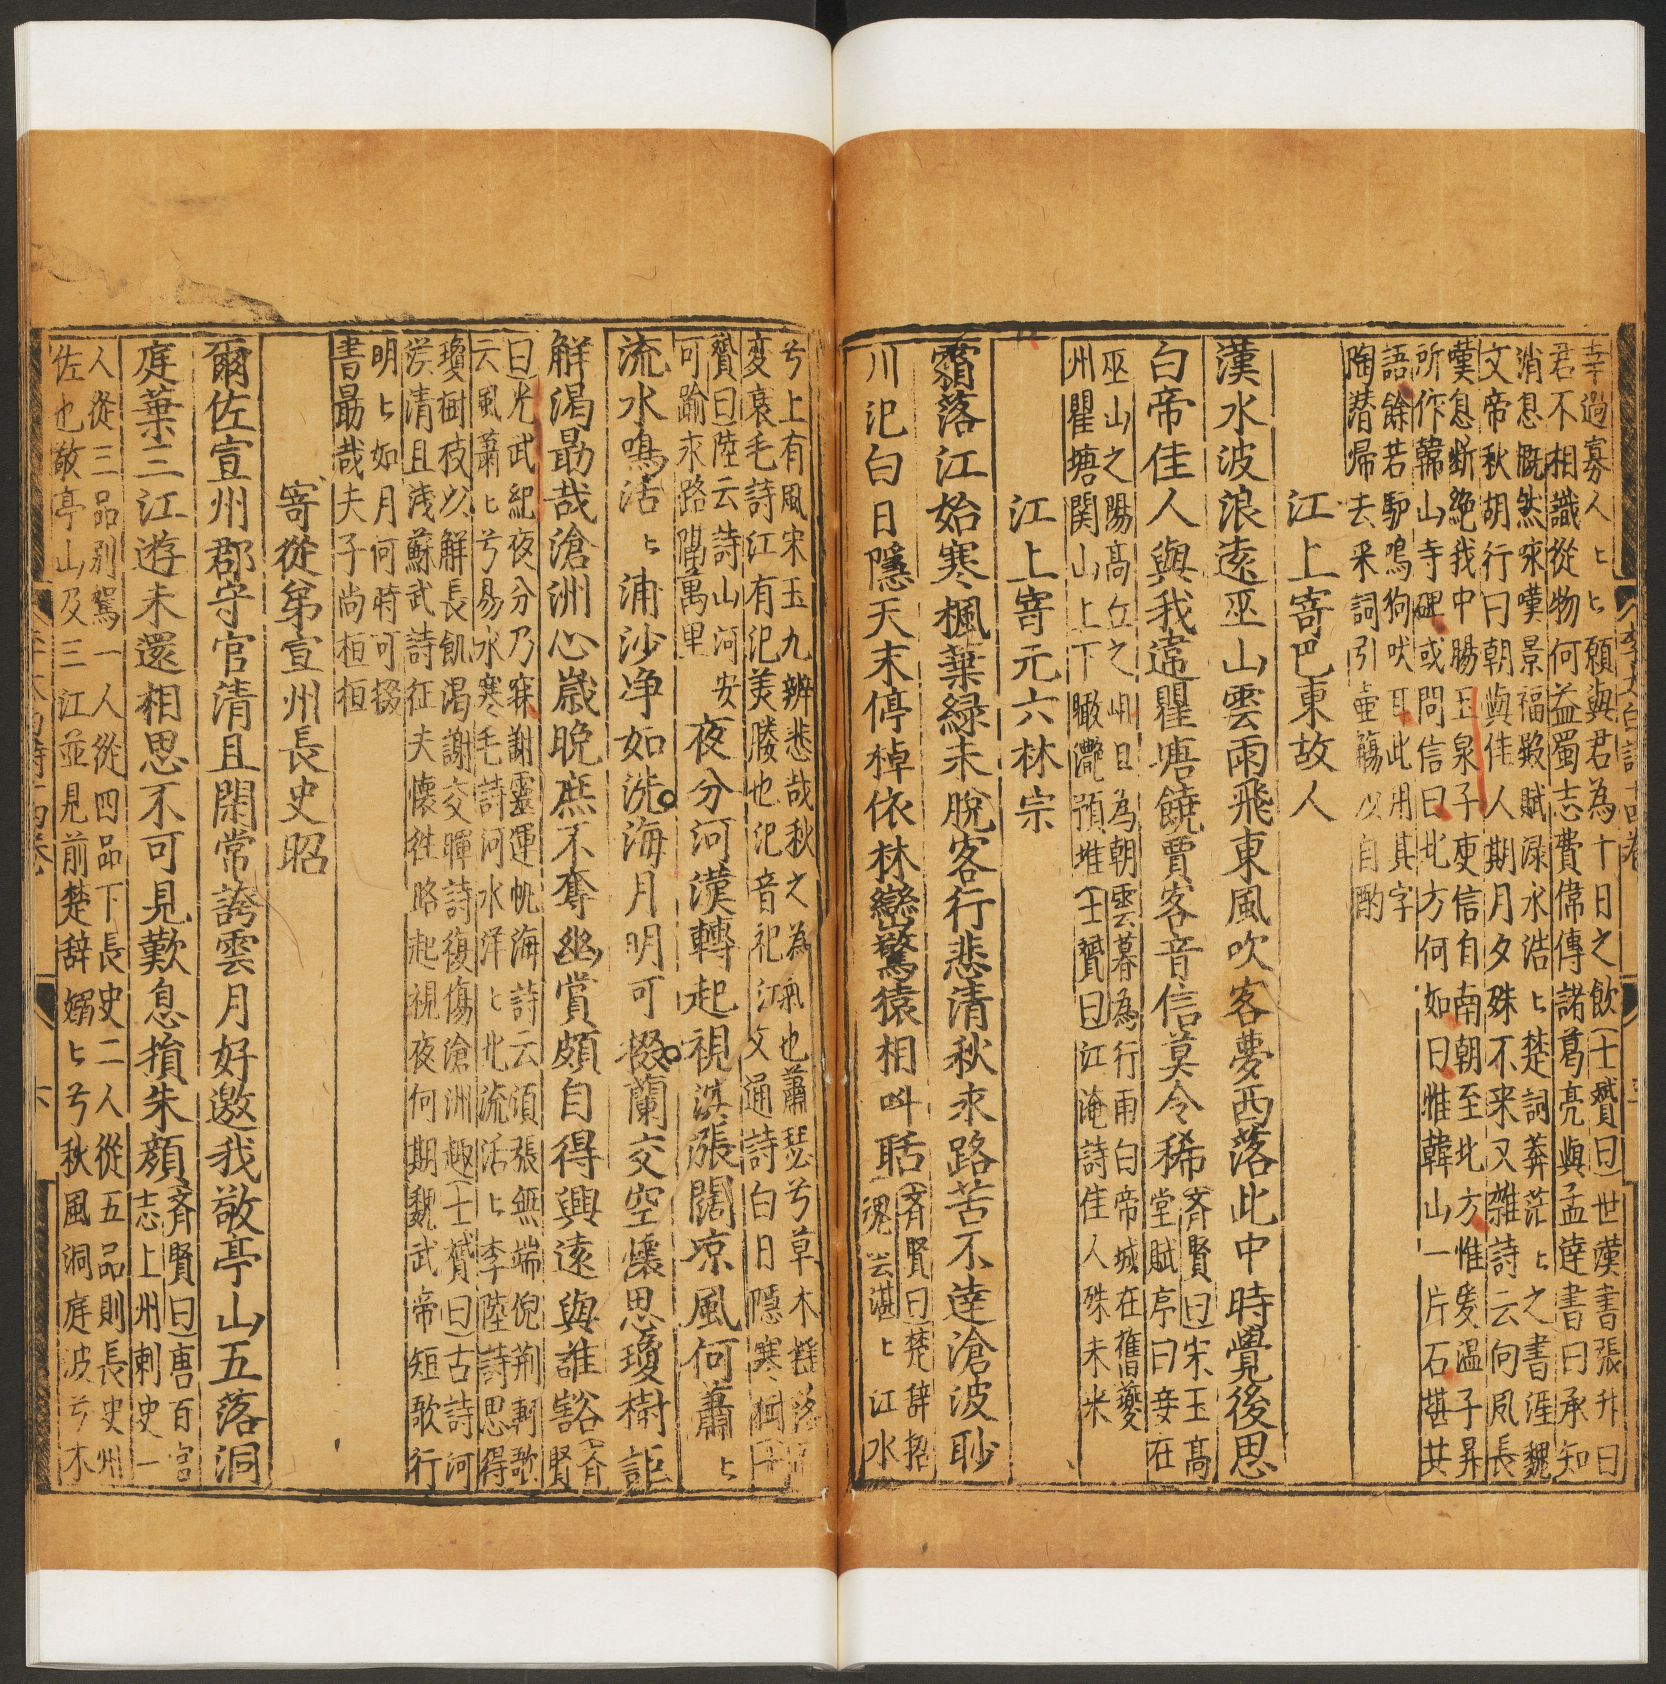 幸過寡人ヒヒ願與君為十日之飲士贇曰世漢書張升曰
君不相識從物何益蜀志費偉傳諸葛亮與孟達書曰承知
消息慨然永嘆景福殿賦淥水浩ヒ楚詞莽茫ヒ之書涯魏
文帝秋胡行曰朝與佳人期月夕殊不来又雜詩云向風長
嘆息斷絶我中腸玉泉子庾信自南朝至北方惟爰温子昇
所作韓山寺碑或問信曰北方何如曰惟韓山一片石堪共
語餘若馿鳴狗吠耳此用其字
陶潜歸去来詞引壷觴以自酌
江上寄巴東故人
漢水波浪遠巫山雲雨飛東風吹客夢西落此中時覺後思
白帝佳人與我違瞿塘饒賈客音信莫令稀
齊賢曰宋玉高
堂賦亭曰妾在
巫山之陽高丘之岨旦為朝雲暮為行雨白帝城在舊夔
州瞿塘関山上下瞰灔預堆士贇曰江淹詩佳人殊未來
江上寄元六林宗
霜落江始寒楓葉緑未脫客行悲清秋永路苦不達滄波眇
川汜白日隱天末停棹依林巒驚猿相呌聒
齊賢曰楚辞招
魂云湛ヒ江水
兮上有風宋玉九辨悲哉秋之為氣也蕭瑟兮草木揺落
変衰毛詩江有汜美媵也汜音祀江文通詩白日隱寒
贇曰陸云詩山河安
可踰永路隔萬里
夜分河漢轉起視溟漲闊凉風何蕭ヒ
流水鳴活ヒ浦沙净如洗海月明可掇蘭交空懷思瓊樹詎
解渴勗哉滄洲心歳晚庶不奪幽賞頗自得興遠與誰豁
齊賢
曰光武紀夜分乃寐謝靈運帆海詩云溟漲無端倪荆軻歌
云風蕭ヒ兮易水寒毛詩河水洋ヒ北流活ヒ李陵詩思得
瓊樹枝以解長飢渴謝玄暉詩復傷滄洲趣士贇曰古詩河
漢清且淺蘇武詩征夫懷徃路起視夜何期魏武帝短歌行
明ヒ如月何時可掇
書勗哉夫子尚桓桓
寄從弟宣州長史昭
爾佐宣州郡守官清且閑常誇雲月好邀我敬亭山五落洞
庭葉三江遊未還相思不可見歎息損朱顔
齊賢曰唐百官
志上州刺史一
人從三品别駕一人從四品下長史二人從五品則長史州
佐也敬亭山及三江並見前楚辞嫋ヒ兮秋風洞庭波兮木